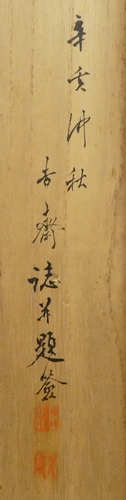 辛亥仲秋
香齋誌并題簽